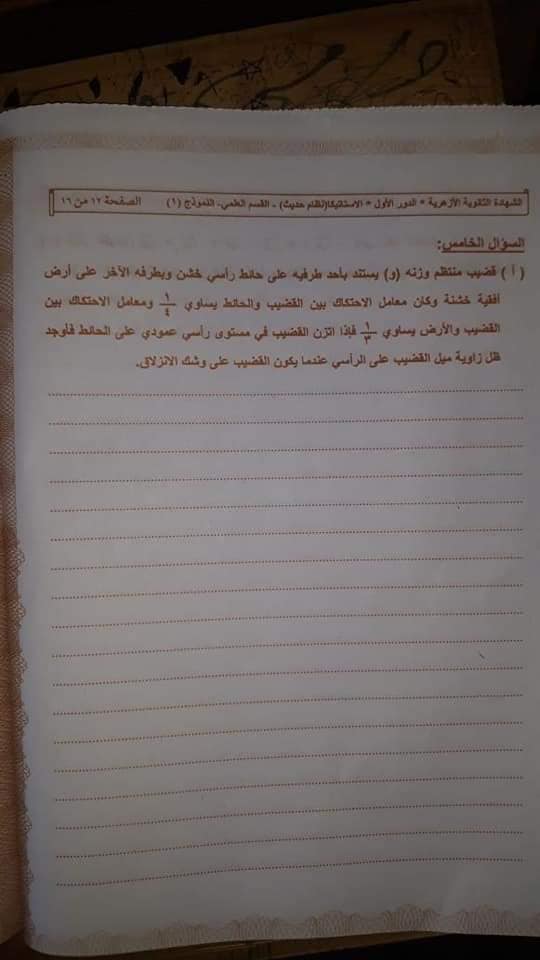 الشهادة الثانوية الأزهرية * الدور الأول * الاستاتيكا(نظام حديث) - القسم العلمي- النموذج (١) الصفحة ١٢ من ١٦
السؤال الخامس:
( أ ) قضيب منتظم وزنه (و) يستند بأحد طرفيه على حائط رأسي خشن وبطرفه الآخر على أرض
أفقية خشنة وكان معامل الاحتكاك بين القضيب والحائط يساوي ١/٤ ومعامل الاحتكاك بين
القضيب والأرض يساوي ١/٣ فإذا اتزن القضيب في مستوى رأسي عمودي على الحائط فأوجد
ظل زاوية ميل القضيب على الرأسي عندما يكون القضيب على وشك الانزلاق.